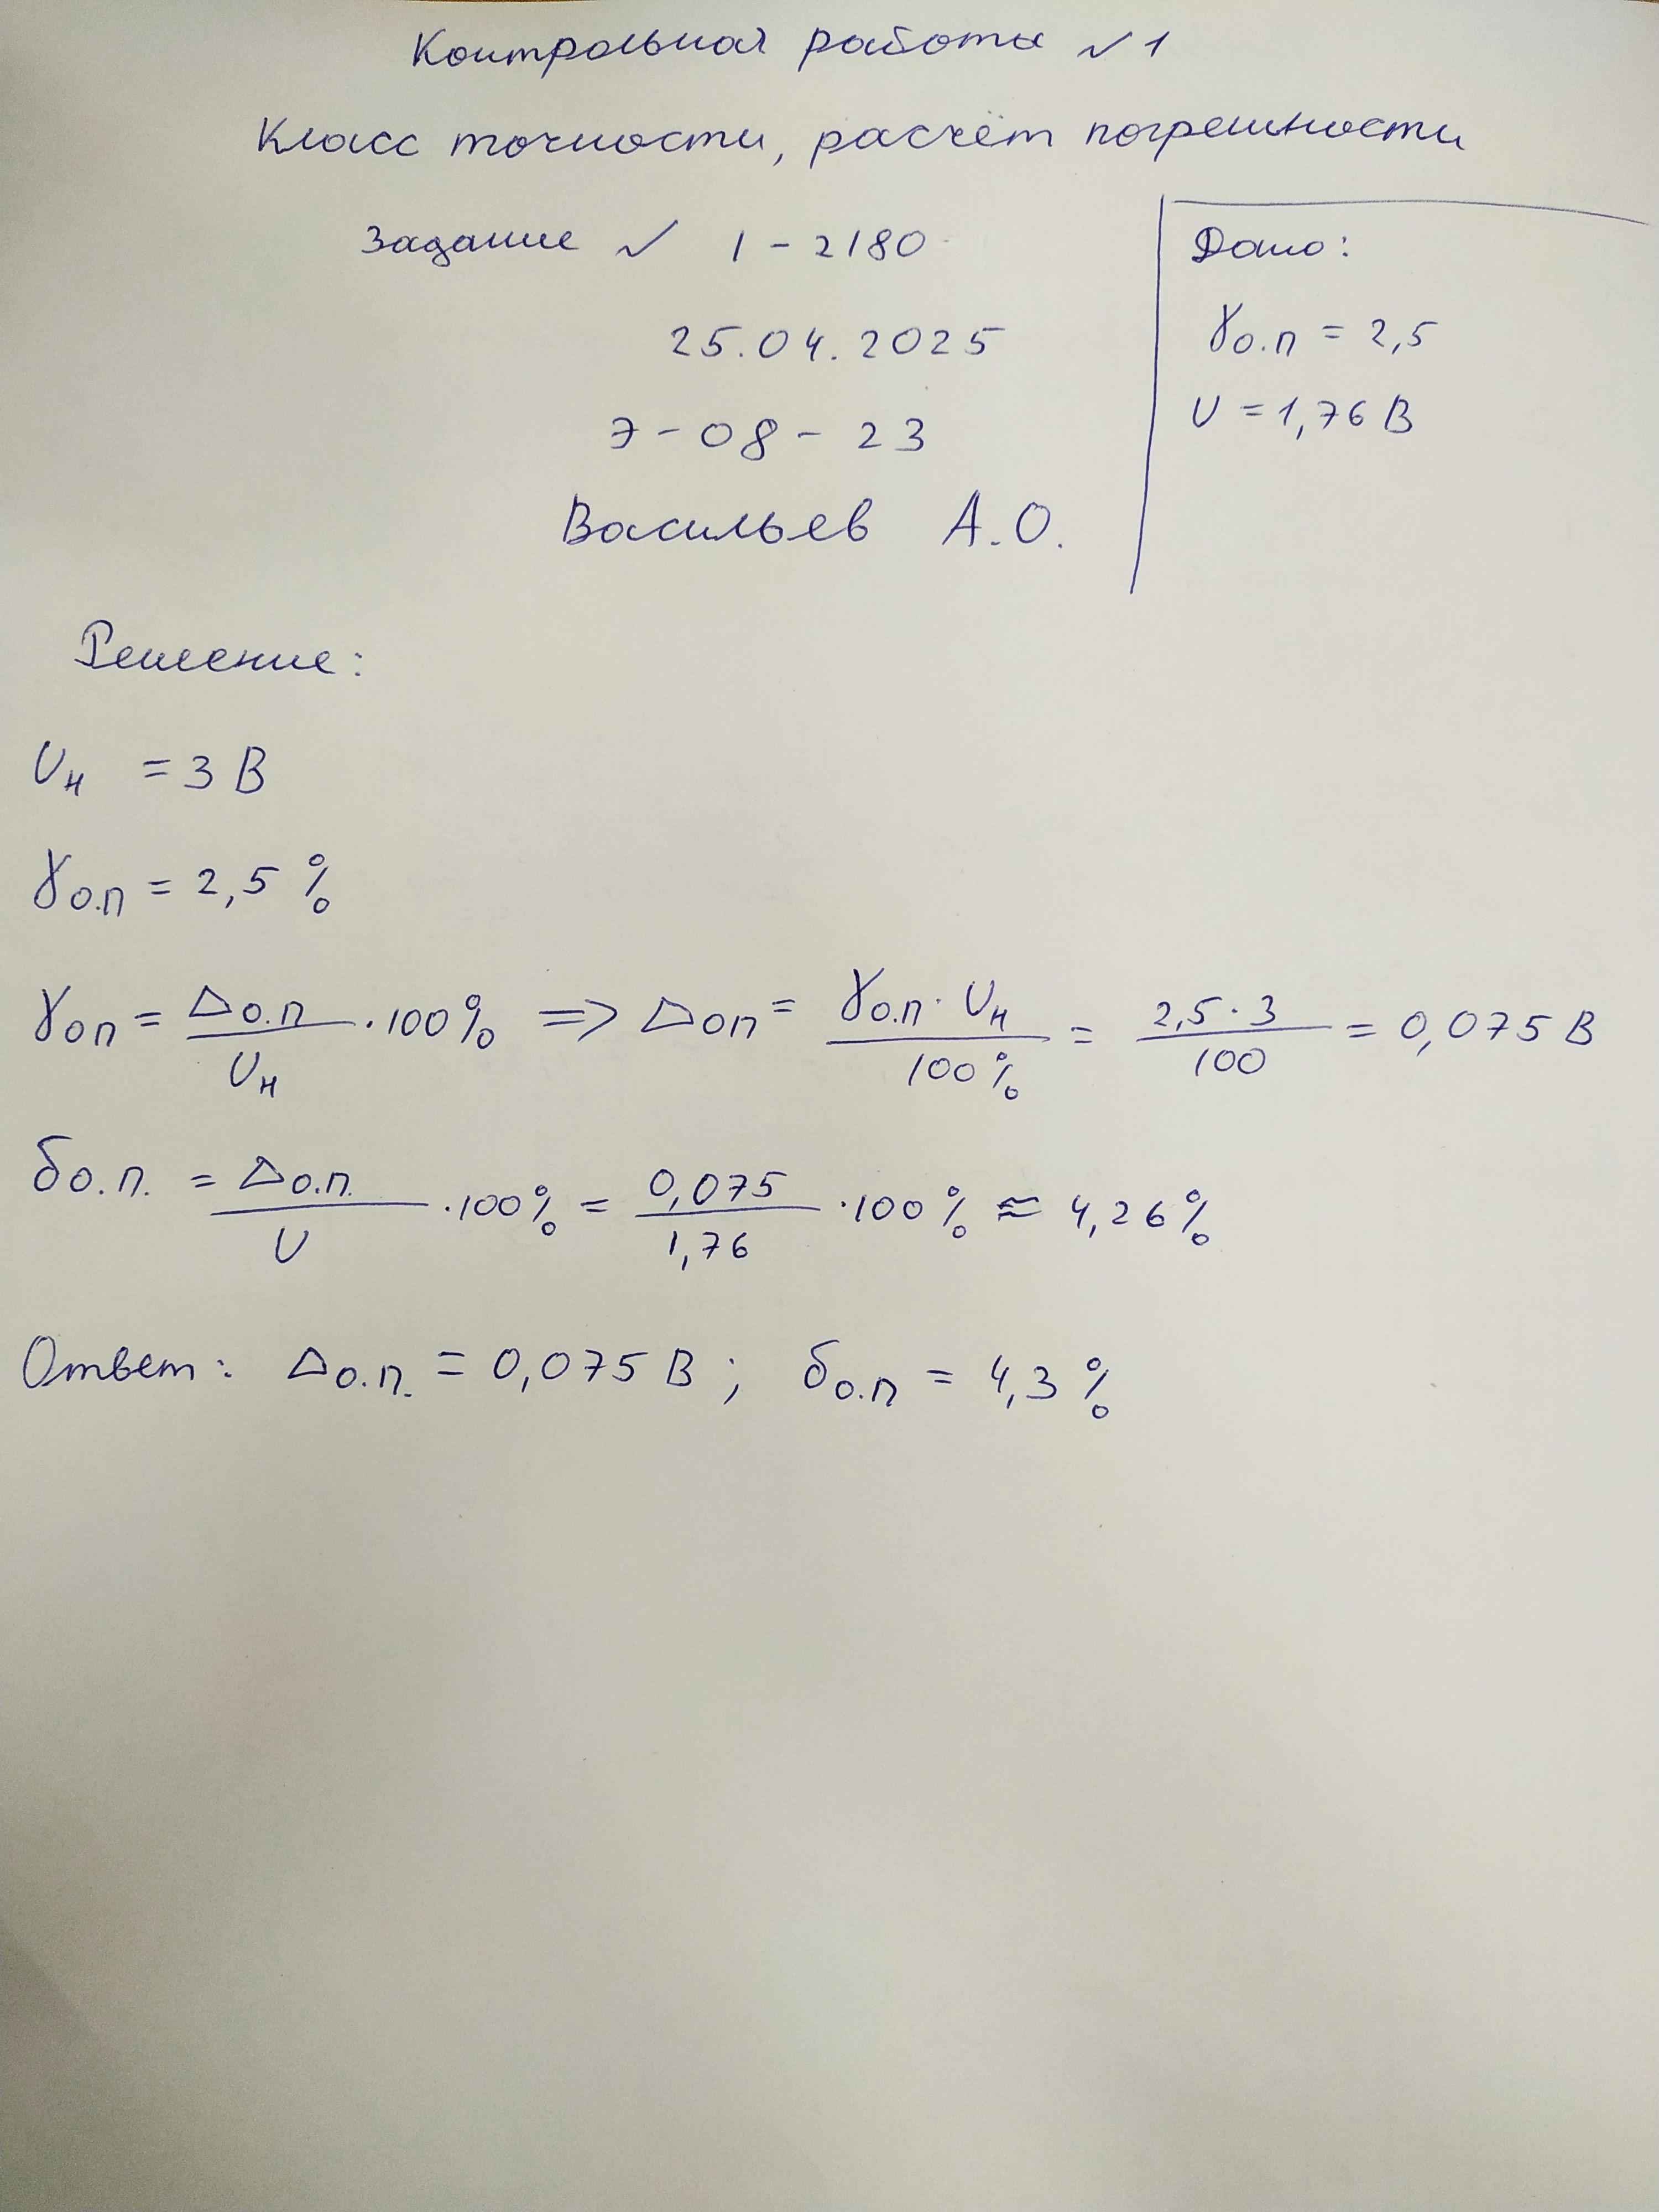 Контрольная работа №1
Класс точности, расчёт погрешности
Задание № 1-2180
25.04.2025
Э-08-23
Васильев А.О.
Дано:
γо.п = 2,5
U = 1,76 В
Решение:
Uн = 3 В
γо.п = 2,5 %
γоп = Δо.п / Uн · 100% => Δоп = γо.п · Uн / 100% = 2,5 · 3 / 100 = 0,075 В
δо.п. = Δо.п. / U · 100% = 0,075 / 1,76 · 100% ≈ 4,26%
Ответ: Δо.п. = 0,075 В ; δо.п = 4,3 %